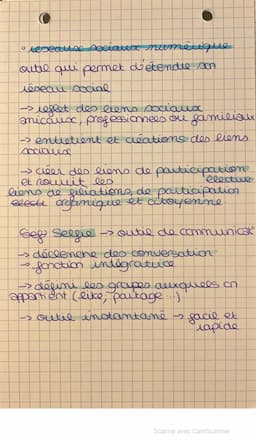 ° réseaux sociaux numérique
outil qui permet d'étendre son
réseau social
→ reflet des liens sociaux
amicaux, professionnels ou familiaux
→ entretient et créations des liens
sociaux
→ créer des liens de participation
et nourrit les élective
liens de filiations, de participation
organique et citoyenne
Selfie → outil de communicat°
→ déclenche des conversation
→ fonction intégratrice
→ défini les groupes auxquels on
appartient (like, partage...)
→ outil instantané → facil et
rapide
Scanné avec CamScanner